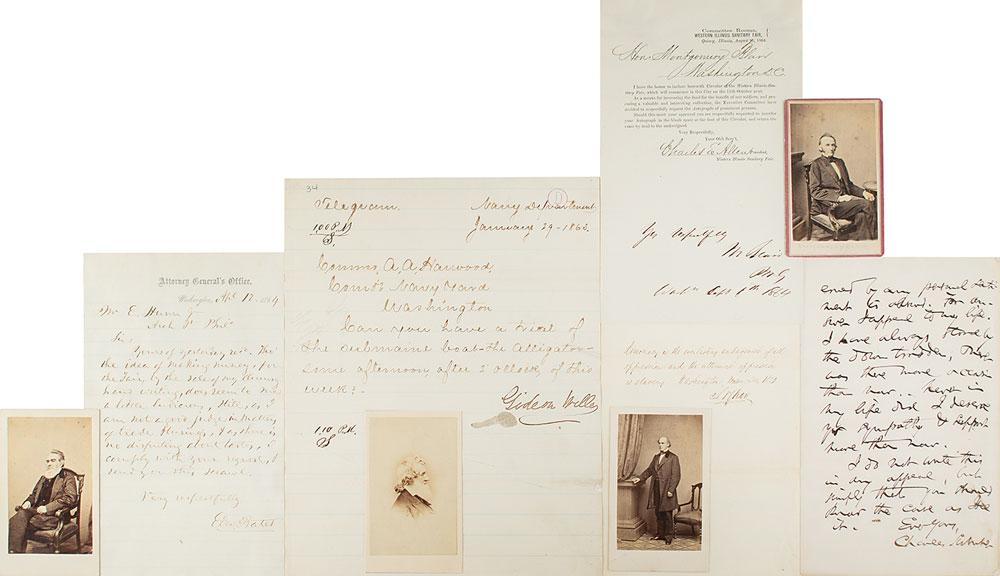 Attorney General's Office,
Washington, 12, 1864
Mr E.
Arch St Phila
Sir,
Yours of yesterday rec. Tho'
the idea of making money, for
the Fair, by the sale of my
hand writing, does seem to me
a little, still, as I
am not a good judge in matters
of trade & as there is
no disputing about tastes, I
comply with your request, &
send you this scrawl.
Very respectfully
Edw. Bates
34
Telegram. Navy Department
1.00 P.M. January 29 - 1863.
Commo. A. A. Harwood,
Comd't Navy Yard
Washington
Can you have a trial of
the submarine boat - the Alligator -
some afternoon, after 2 o'clock, of this
week? -
Gideon Welles
1.10 P.M.
Committee Rooms,
WESTERN ILLINOIS SANITARY FAIR,
Quincy, Illinois, August 1864.
Hon. Montgomery Blair
Washington D.C.
I have the honor to inclose herewith Circular of the Western Illinois Sanitary
Fair, which will commence in this City on the 11th October next.
As a means for increasing the fund for the benefit of our soldiers, and procuring
a valuable and interesting collection, the Executive Committee have
decided to respectfully request the Autographs of prominent persons.
Should this meet your approval you are respectfully requested to inscribe
your Autograph in the blank space at the foot of this Circular, and return the
same by mail to the undersigned.
Very Respectfully,
Your Ob't Serv't,
Charles E. Allen
Western Illinois Sanitary Fair.
Yrs respectfully
M Blair
P.M.G
Sept 1864
Democracy is the
oppression and the
is slavery.
erned by any personal
ment is absurd. For an-
swer I appeal to my life.
I have always stood by
the down trodden,
was there more occasion
than now. - Never in
my life did I deserve
yr sympathy & support
more than now.
I do not write this
in any appeal, but
simply that you should
know the case as I see
it. Ever Yours,
Charles Sumner